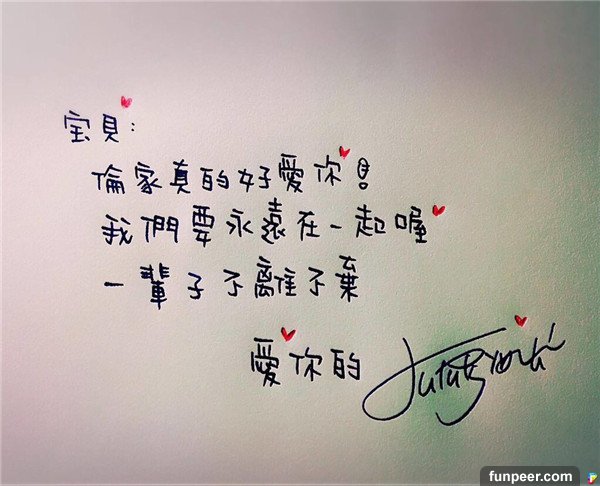 宝貝:
倫家真的好愛你!
我們要永遠在一起喔
一輩子不離不棄
愛你的
funpeer.com